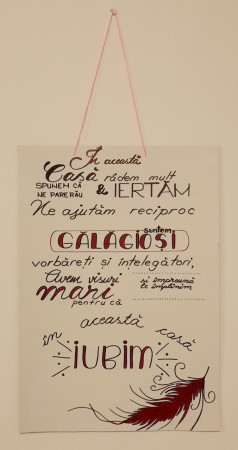 În această
Casă râdem mult
SPUNEM CĂ NE PARE RĂU & IERTĂM
Ne ajutăm reciproc
suntem
GĂLĂGIOȘI
vorbăreți și înțelegători,
Avem visuri mari și împreună le împlinim
pentru că
această
în casă
IUBIM